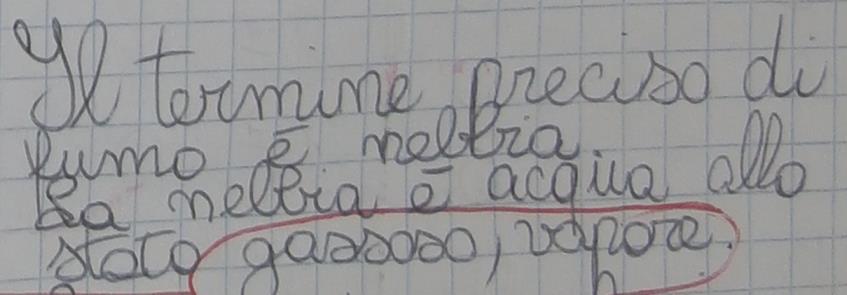 Il termine preciso di
fumo è nebbia.
La nebbia è acqua allo
stato gassoso, vapore.